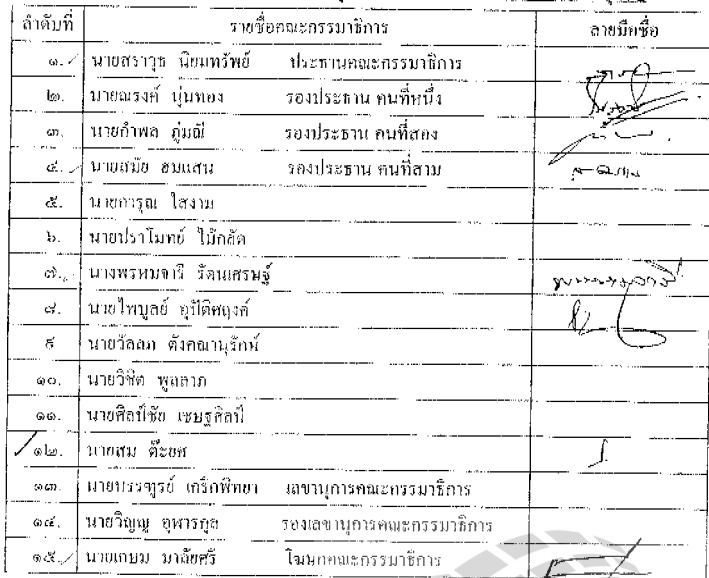 ลำดับที่ รายชื่อคณะกรรมาธิการ ลายมือชื่อ
๑. นายสราวุธ นิยมทรัพย์ ประธานคณะกรรมาธิการ
๒. นายณรงค์ นุ่นทอง รองประธาน คนที่หนึ่ง
๓. นายกำพล ภู่มณี รองประธาน คนที่สอง
๔. นายสมัย ฮมแสน รองประธาน คนที่สาม
๕. นายการุณ ใสงาม
๖. นายปราโมทย์ ไม้กลัด
๗. นางพรหมจารี รัตนเศรษฐ์
๘. นายไพบูลย์ อุปัติศฤงค์
๙ นายวัลลภ ตังคณานุรักษ์
๑๐. นายวิชิต พูลลาภ
๑๑. นายศิลป์ชัย เชษฐศิลป์
๑๒. นายสม ต๊ะยศ
๑๓. นายบรรฑูรย์ เกริกพิทยา เลขานุการคณะกรรมาธิการ
๑๔. นายวิญญู อุฬารกุล รองเลขานุการคณะกรรมาธิการ
๑๕. นายเกษม มาลัยศรี โฆษกคณะกรรมาธิการ